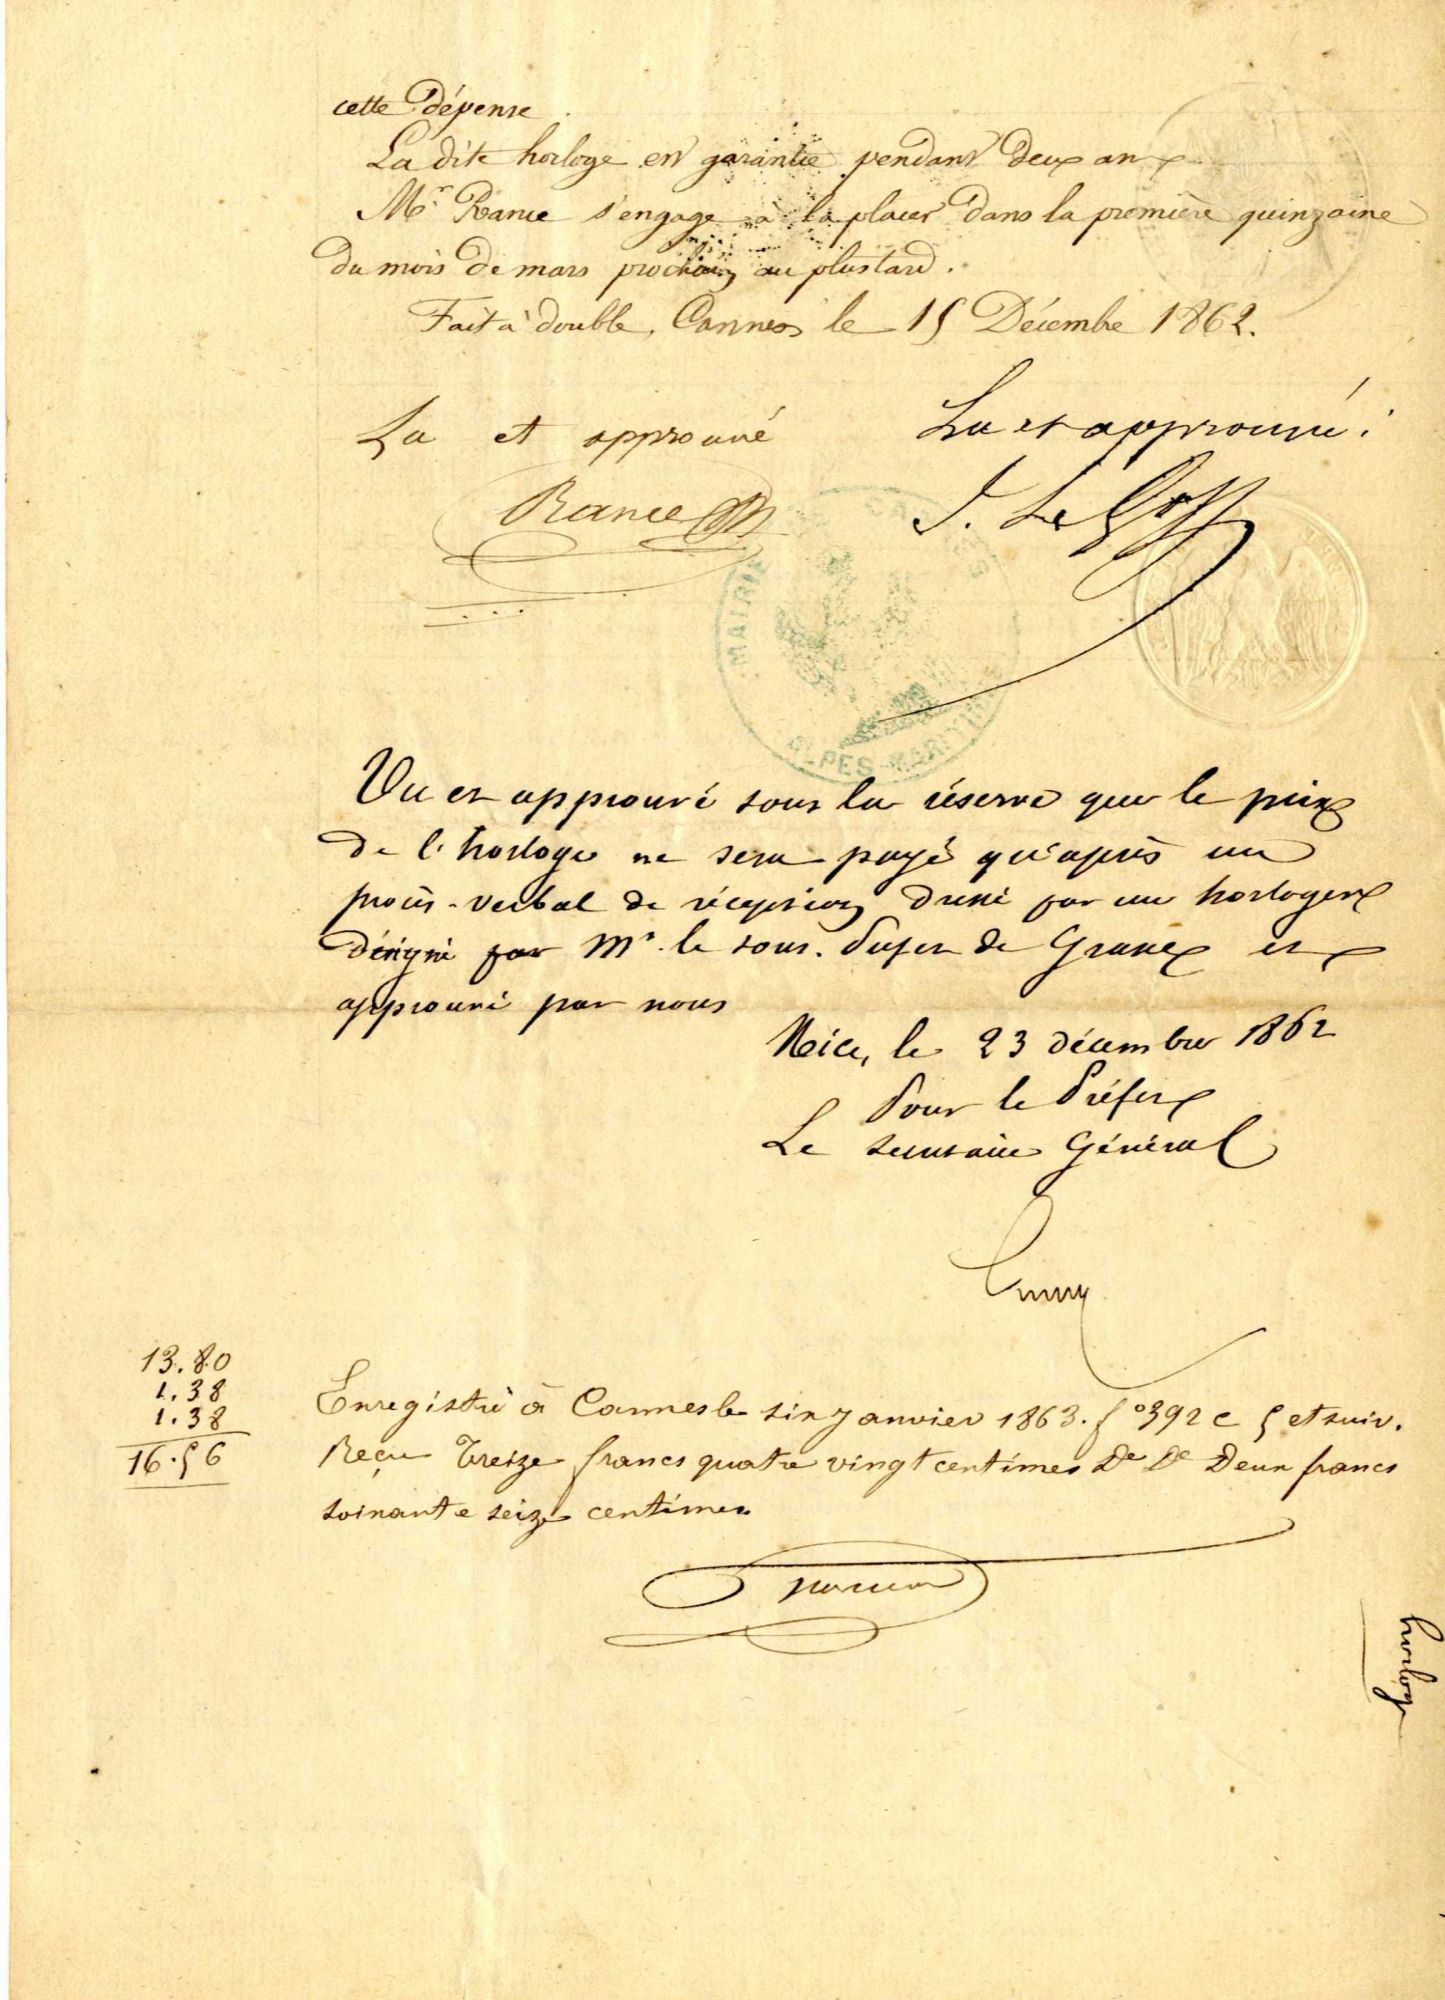 cette dépense
La dite horloge est garantie pendant deux ans
Mr. Rance s'engage à la placer dans la première quinzaine
du mois de mars prochain au plustard.
Fait à double, Cannes le 15 Décembre 1862.
Lu et approuvé
Lu et approuvé :
Rance
J. Le Goff
MAIRIE CANNES
ALPES-MARITIMES
Vu et approuvé sous la réserve que le prix
de l'horloge ne sera payé qu'après un
procès-verbal de réception dressé par un horloger
désigné par Mr. le sous-Préfet de Grasse et
approuvé par nous
Nice, le 23 décembre 1862
Pour le Préfet
Le secrétaire Général
13.80
1.38
1.38
16.56
Enregistré à Cannes le six janvier 1863. fo 392 c 5 et suiv.
Reçu Treize francs quatre vingt centimes De De Deux francs
soixante seize centimes
horloge